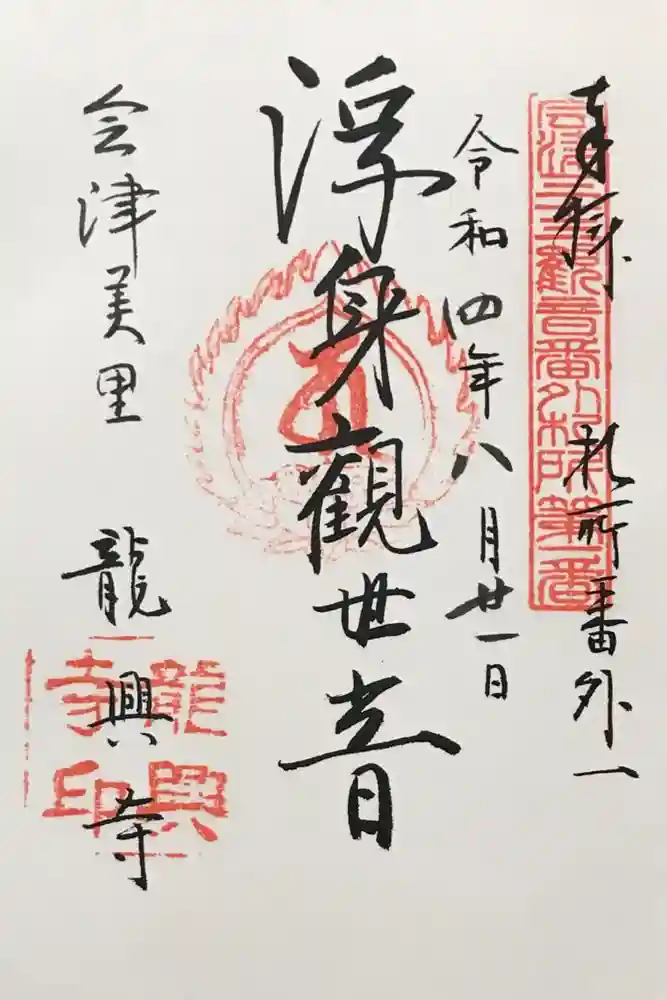 奉拝 札所番外一
会津三十三観音番外札所第一番
令和四年八月廿一日
浮身觀世音
会津美里 龍興寺
龍興寺印